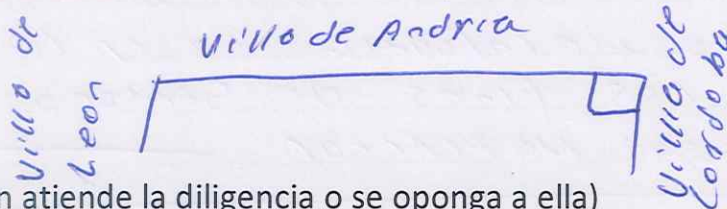 Villa de Leon
Villa de Andria
Villa de Cordoba
n atiende la diligencia o se oponga a ella)